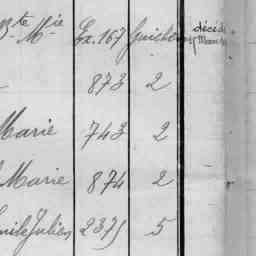 zte Mie Ex.167 Guichen décédé
873 2
Marie 743 2
Marie 874 2
Emile Julien 2375 5